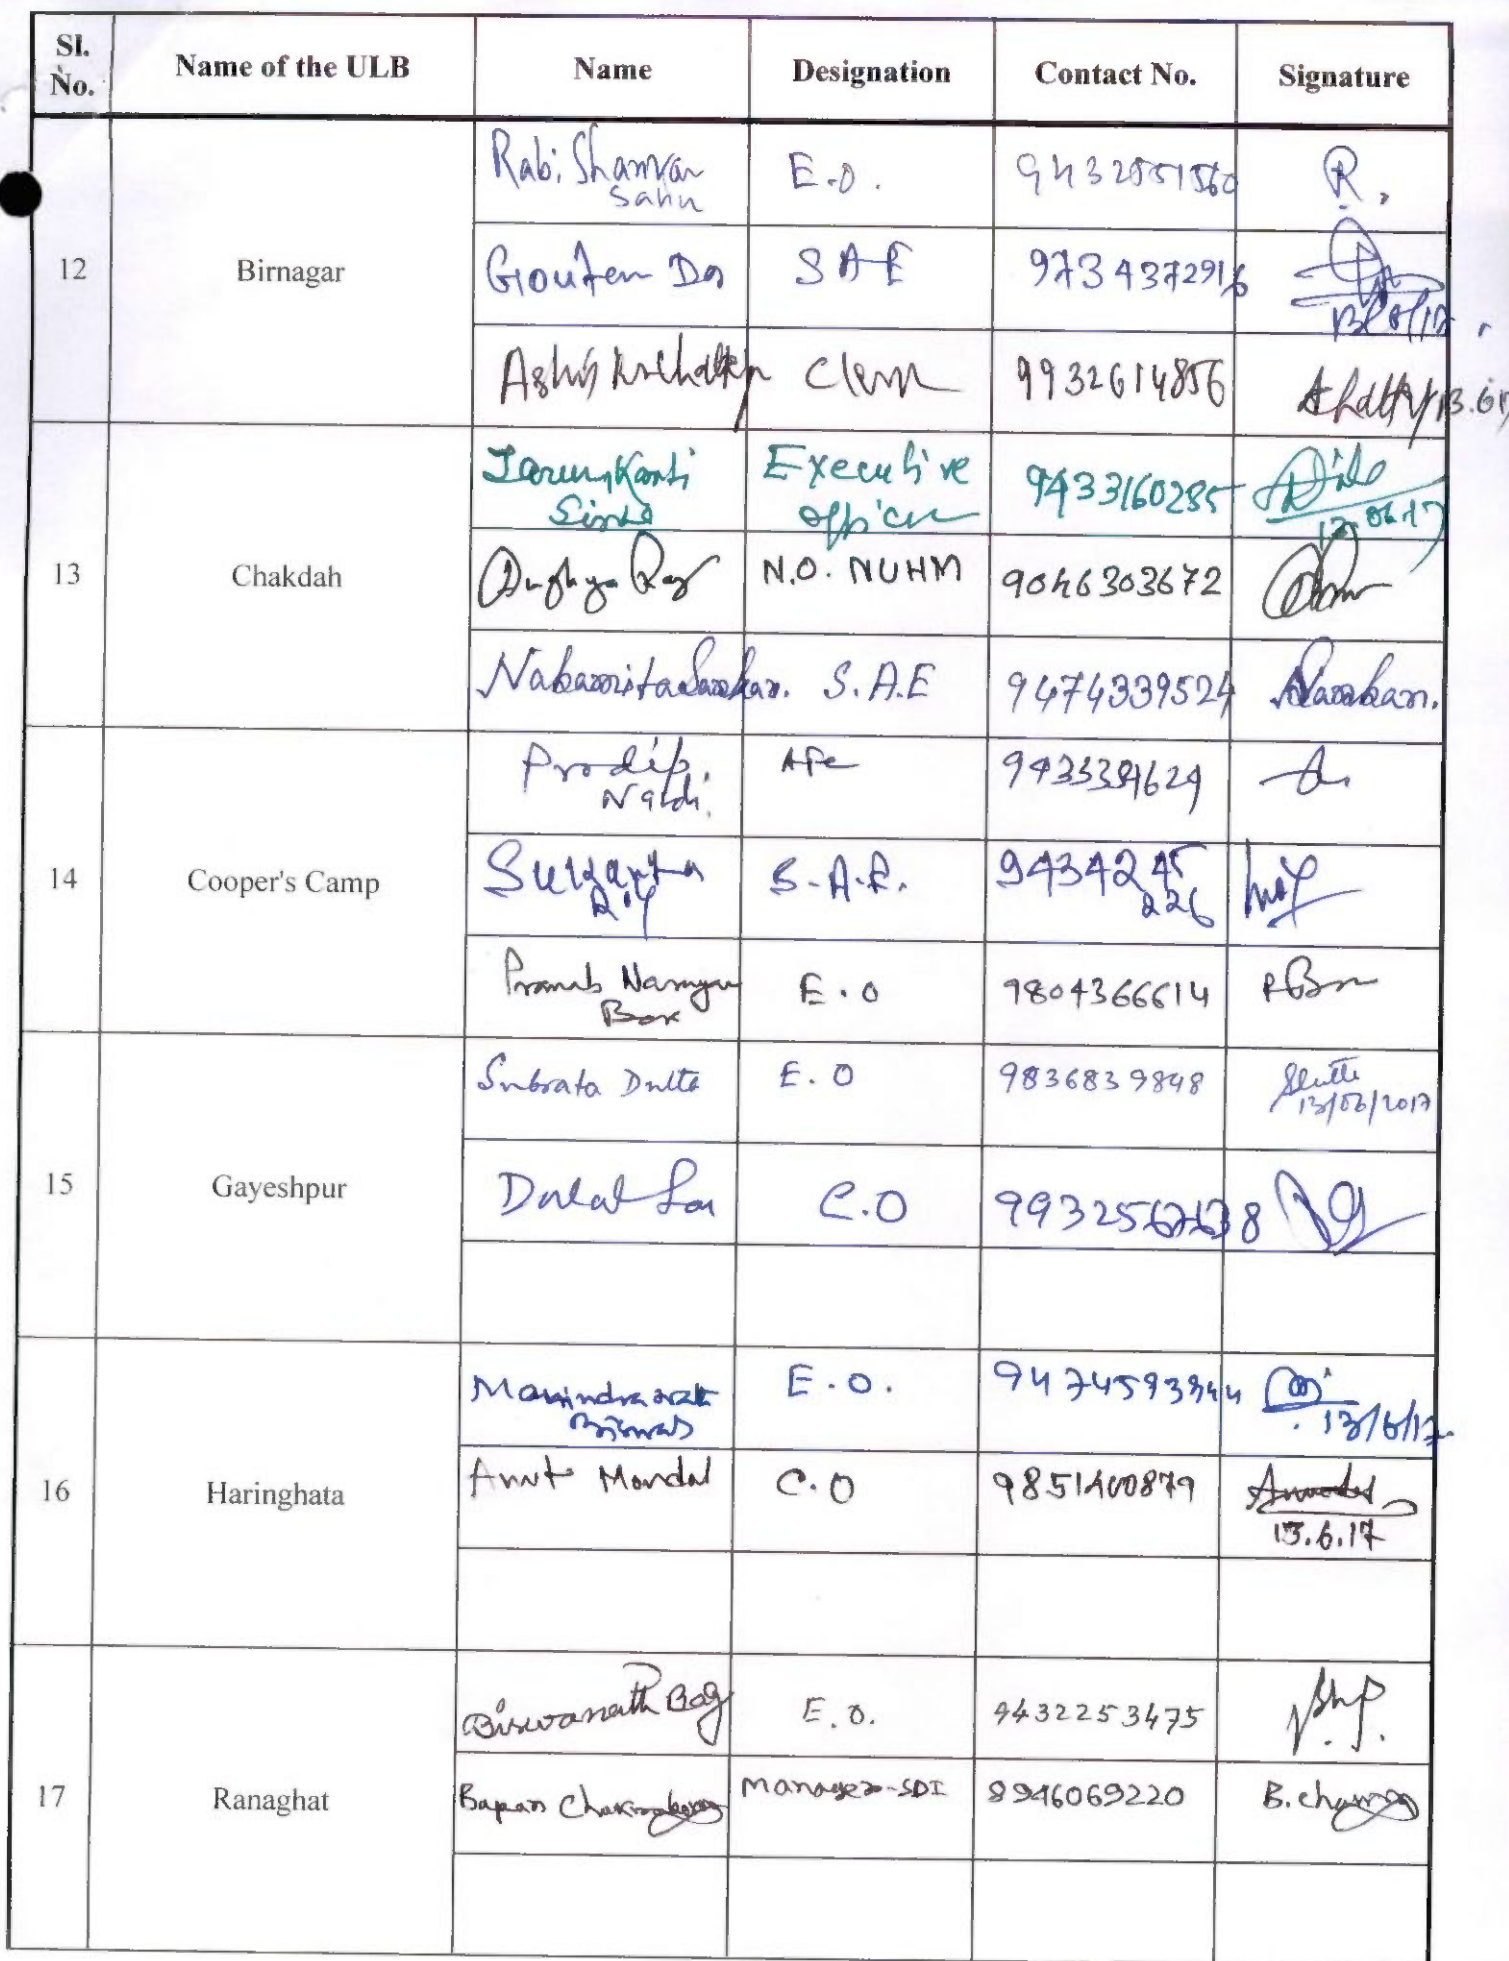 Sl. No. Name of the ULB Name Designation Contact No. Signature
12 Birnagar
Rabi Shankar Sahu E.O. 9432551560 R.
Goutam Das S A E 9734372916
Ashis 9932614856
13 Chakdah
Tarun Kanti Sinha Executive officer 9433160285 13.06.17
Arghya Roy N.O. NUHM 9046303672
Nabamita Sarkar. S.A.E 9474339524 NSarkar.
14 Cooper's Camp
Prodip. Nandi.
Sukanta Roy S.A.E. 9434245 226
Pranab Narayan Bose E.O 9804366614 PBose
15 Gayeshpur
Subrata Dutta E.O 9836839848 SDutta 13/06/2017
Dulal C.O
16 Haringhata
Manindranath Biswas E.O. 13/6/17
Amit Mondal C.O 9851400879 13.6.17
17 Ranaghat
Biswanath Bag E.O. 9432253475
Bapan Chakraborty Manager-SDI 8946069220